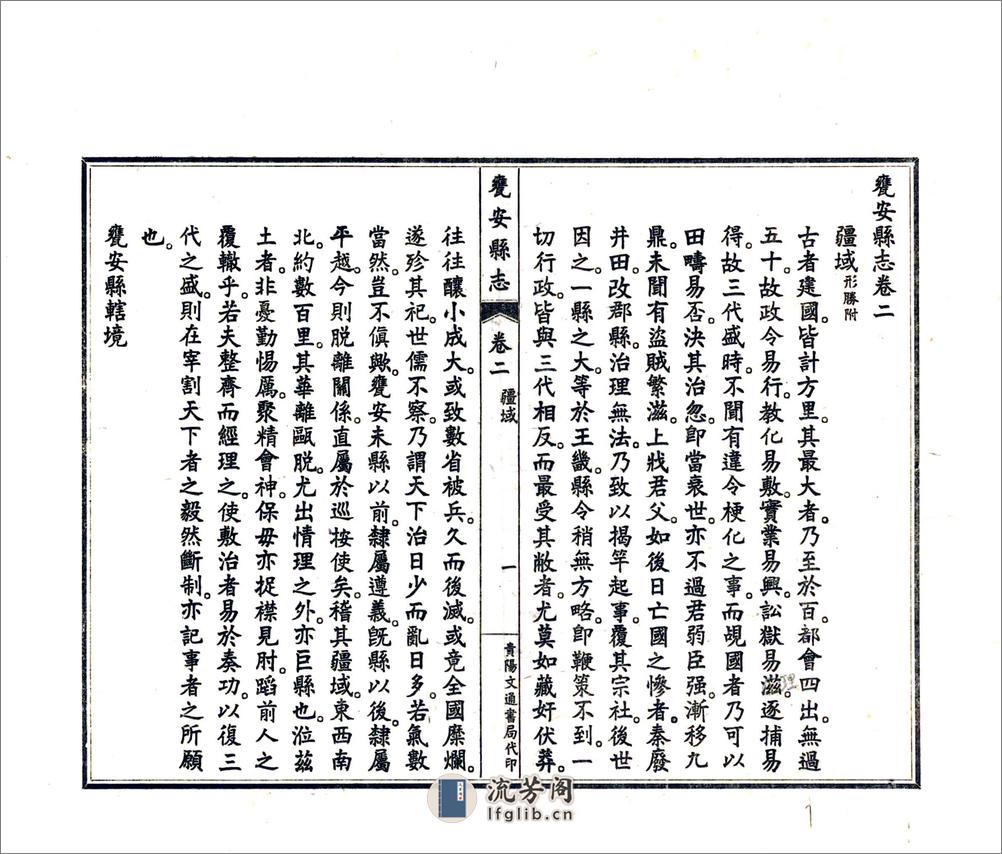 甕安縣志卷二
疆域形勝附
古者建國。皆計方里。其最大者。乃至於百。都會四出。無過
五十。故政令易行。教化易敷。實業易興。訟獄易滋。逐捕易
得。故三代盛時。不聞有違令梗化之事。而覘國者乃可以
田疇易否。決其治忽。即當衰世。亦不過君弱臣强。漸移九
鼎。未聞有盜賊繁滋。上戕君父。如後日亡國之慘者。秦廢
井田。改郡縣。治理無法。乃致以揭竿起事。覆其宗社。後世
因之。一縣之大。等於王畿。縣令稍無方略。即鞭策不到。一
切行政。皆與三代相反。而最受其敝者。尤莫如藏奸伏莽。
甕安縣志
卷二
疆域
一
貴陽文通書局代印
往往釀小成大。或致數省被兵。久而後滅。或竟全國糜爛。
遂殄其祀。世儒不察。乃謂天下治日少而亂日多。若氣數
當然。豈不傎歟。甕安未縣以前。隸屬遵義。旣縣以後。隸屬
平越。今則脫離關係。直屬於巡按使矣。稽其疆域。東西南
北。約數百里。其華離甌脫。尤出情理之外。亦巨縣也。涖茲
土者。非憂勤惕厲。聚精會神。保毋亦捉襟見肘。蹈前人之
覆轍乎。若夫整齊而經理之。使敷治者易於奏功。以復三
代之盛。則在宰割天下者之毅然斷制。亦記事者之所願
也。
甕安縣轄境
流芳阁
lfglib.cn